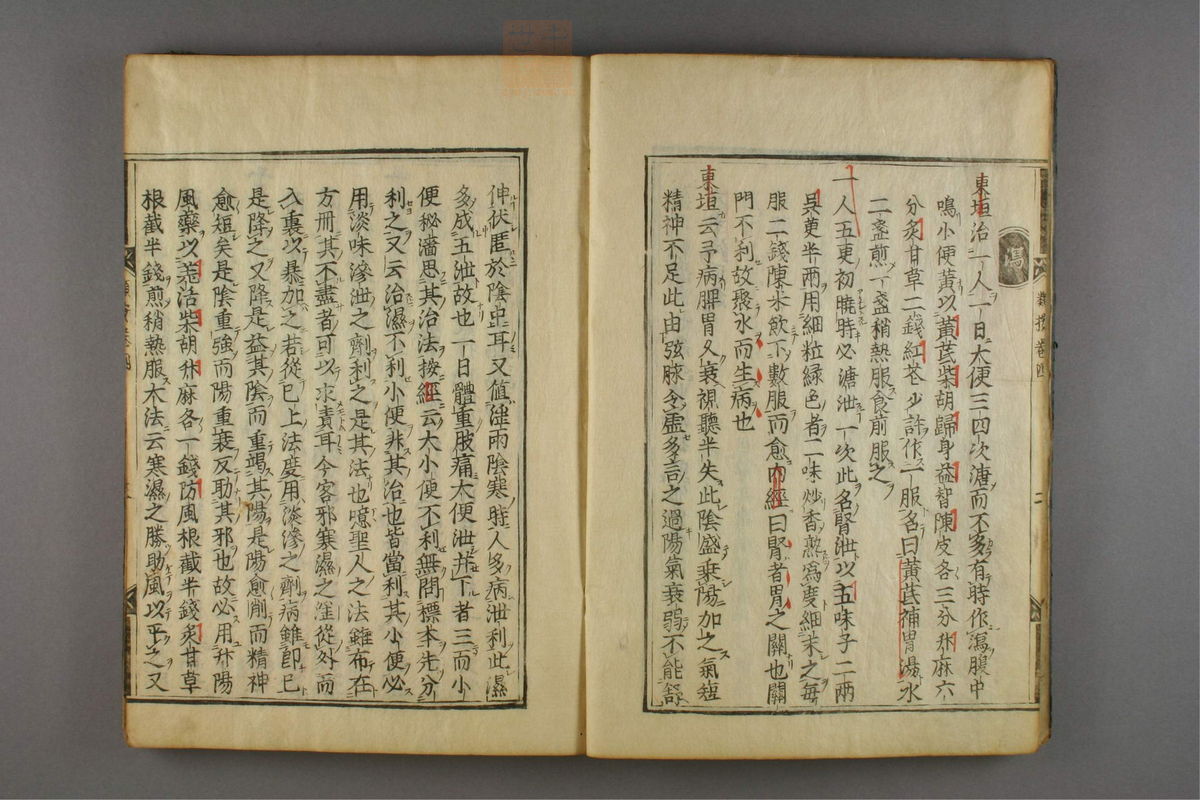 瀉
東垣治一人一日大便三四次溏而不多有時作瀉腹中
鳴小便黃以黃芪柴胡歸身益智陳皮各三分升麻六
分炙甘草二錢紅花少許作一服名曰黃芪補胃湯水
二盞煎一盞稍熱服食前服之
一人五更初曉時必溏泄一次此名腎泄以五味子二兩
吳茰半兩用細粒緑色者二味炒香熟爲度細末之每
服二錢陳米飲下數服而愈內經曰腎者胃之關也關
門不利故聚水而生病也
東垣云予病脾胃久衰視聽半失此陰盛乗陽加之氣短
精神不足此由弦脉令虛多言之過陽氣衰弱不能舒
伸伏匿於陰中耳又值淫雨陰寒時人多病泄利此濕
多成五泄故也一日體重肢痛大便泄并下者三而小
便秘濇思其治法按經云大小便不利無問標本先分
利之又云治濕不利小便非其治也皆當利其小便必
用淡味滲泄之劑利之是其法也噫聖人之法雖布在
方冊其不盡者可以求責耳今客邪寒濕之淫從外而
入裏以暴加之若從已上法度用淡滲之劑病雖即已
是降之又降是益其陰而重竭其陽是陽愈削而精神
愈短矣是陰重強而陽重衰反助其邪也故必用升陽
風藥以羌活柴胡升麻各一錢防風根截半錢炙甘草
根截半錢煎稍熱服大法云寒濕之勝助風以平之又